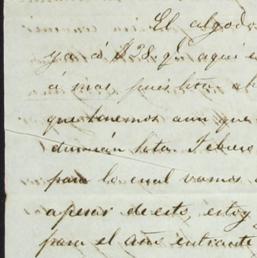 El algodo
ya á $28 ql aqui e
á mas, pues hta
que tenemos aun que
durarán hta. Febrero
para lo cual vamos
apesar de esto, estoy
para el año entrante